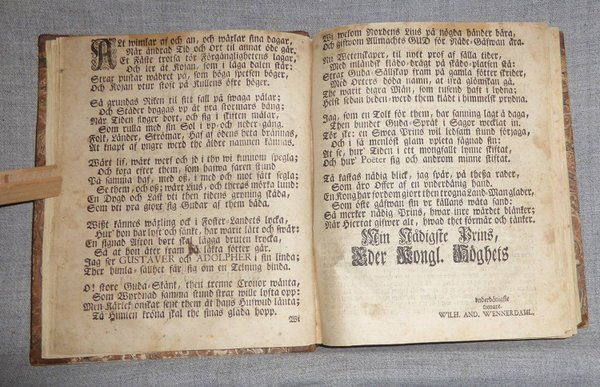 Alt wimlar af och an, och wärlar sina dagar,
När ändrad Tid och Ort til annat öde går.
Et Fäste trotsa tör Förgänglighetens lagar,
Och ler åt Kojan, som i låga dalen står:
Strax pustar wädret på, som höga spetsen böger,
Och Kojan utur stoft på Kullens öfre höger.
Så grundas Riken til sitt fall på swaga pålar;
Och Städer byggas up at yra stormars bång;
När Tiden sluger bort, och sig i skiften målar,
Som rulla med sin Sol i up- och neder-gång.
Folk, Länder, Strömar, Haf af ödens beta brännas,
At knapt af yngre werd the äldre namnen kännas.
Wårt lif, wårt werf och id i thy wi kunnom spegla;
Och köra efter them, som hafwa faren stund
På samma haf, med oß, i med och mot fått segla;
Se them, och oß; wårt Lius, och theras mörka lund:
En Dygd och Last uti then tidens gröning skåda,
Som uti pra giort sig Gudar af them båda.
Wißt kännes wäxling ock i Foster-Landets lycka,
Hur hon har lyft och sänkt, har warit lätt och swår;
En signad Afton bört skal lägga bruten krocka,
Så at hon åter fram på lätta fötter går.
Jag ser GUSTAVER och ADOLPHER i sin linda;
Ther himla-sällhet får sig om en Telning binda.
O! store Guda-Skänk, then trenne Cronor wänta,
Som Wordnad samma stund sträx wille lyfta opp;
Men Kärlek önskar sent them åt hans Hufwud länta;
Tå Himlen kröna skal the sinas glada hopp.
Wi
Wi welom Nordens Lius på nögda händer bära,
Och gifwom Allmachts GUD för Nåde-Gåfwan ära.
Nu Wetenskaper, til nytt prof af fälla tider,
Med mild-rik kläde-drägt på kläde-platsen stå:
Strax Guda-Sälskap fram på gamla fötter skrider,
Med Orters döda namn, at ifrå glömskan gå.
The warit digra Män, som tusend haft i hodna;
Helst sedan heden-werd them klädt i himmelsk prydna.
Jag, som en Tolk för them, har sanning lagt å baga,
Then bundet Guda-Språk i Sagor wecklat in.
Tör ske: en Swea Prins wil ledsam stund förjaga,
Och i så menlöst glam wpleta fägnad sin:
At se, hur Tiden i ett mongfalt minne skiftat,
Och hur Poeter sig och androm minne stiftat.
Tå kastas nådig blick, jag spår, på theßa rader,
Som äro Offer af en underdånig hand.
En Kong har fordom giort then trogna Land-Man glader,
Som öste gåfwan sin ur källans wåta sand:
Så mercker nådig Prins, hwar inre wärdet blänker;
När Hierrat gifwer alt, hwad thet förmår och tänker.
Min Nådigste Prins,
Eder Kongl. Höghets
underdånigste
tienare.
WILH. AND. WENNERDAHL.